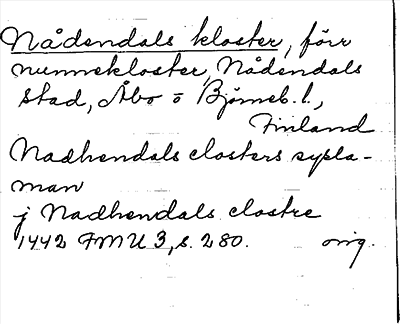 Nådendals kloster, förr
nunnekloster, Nådendals
stad, Åbo o Björneb. l.,
Finland
Nadhendals closters sysla-
man
j Nadhendals clostre
1442 FMU 3, s. 280. orig.